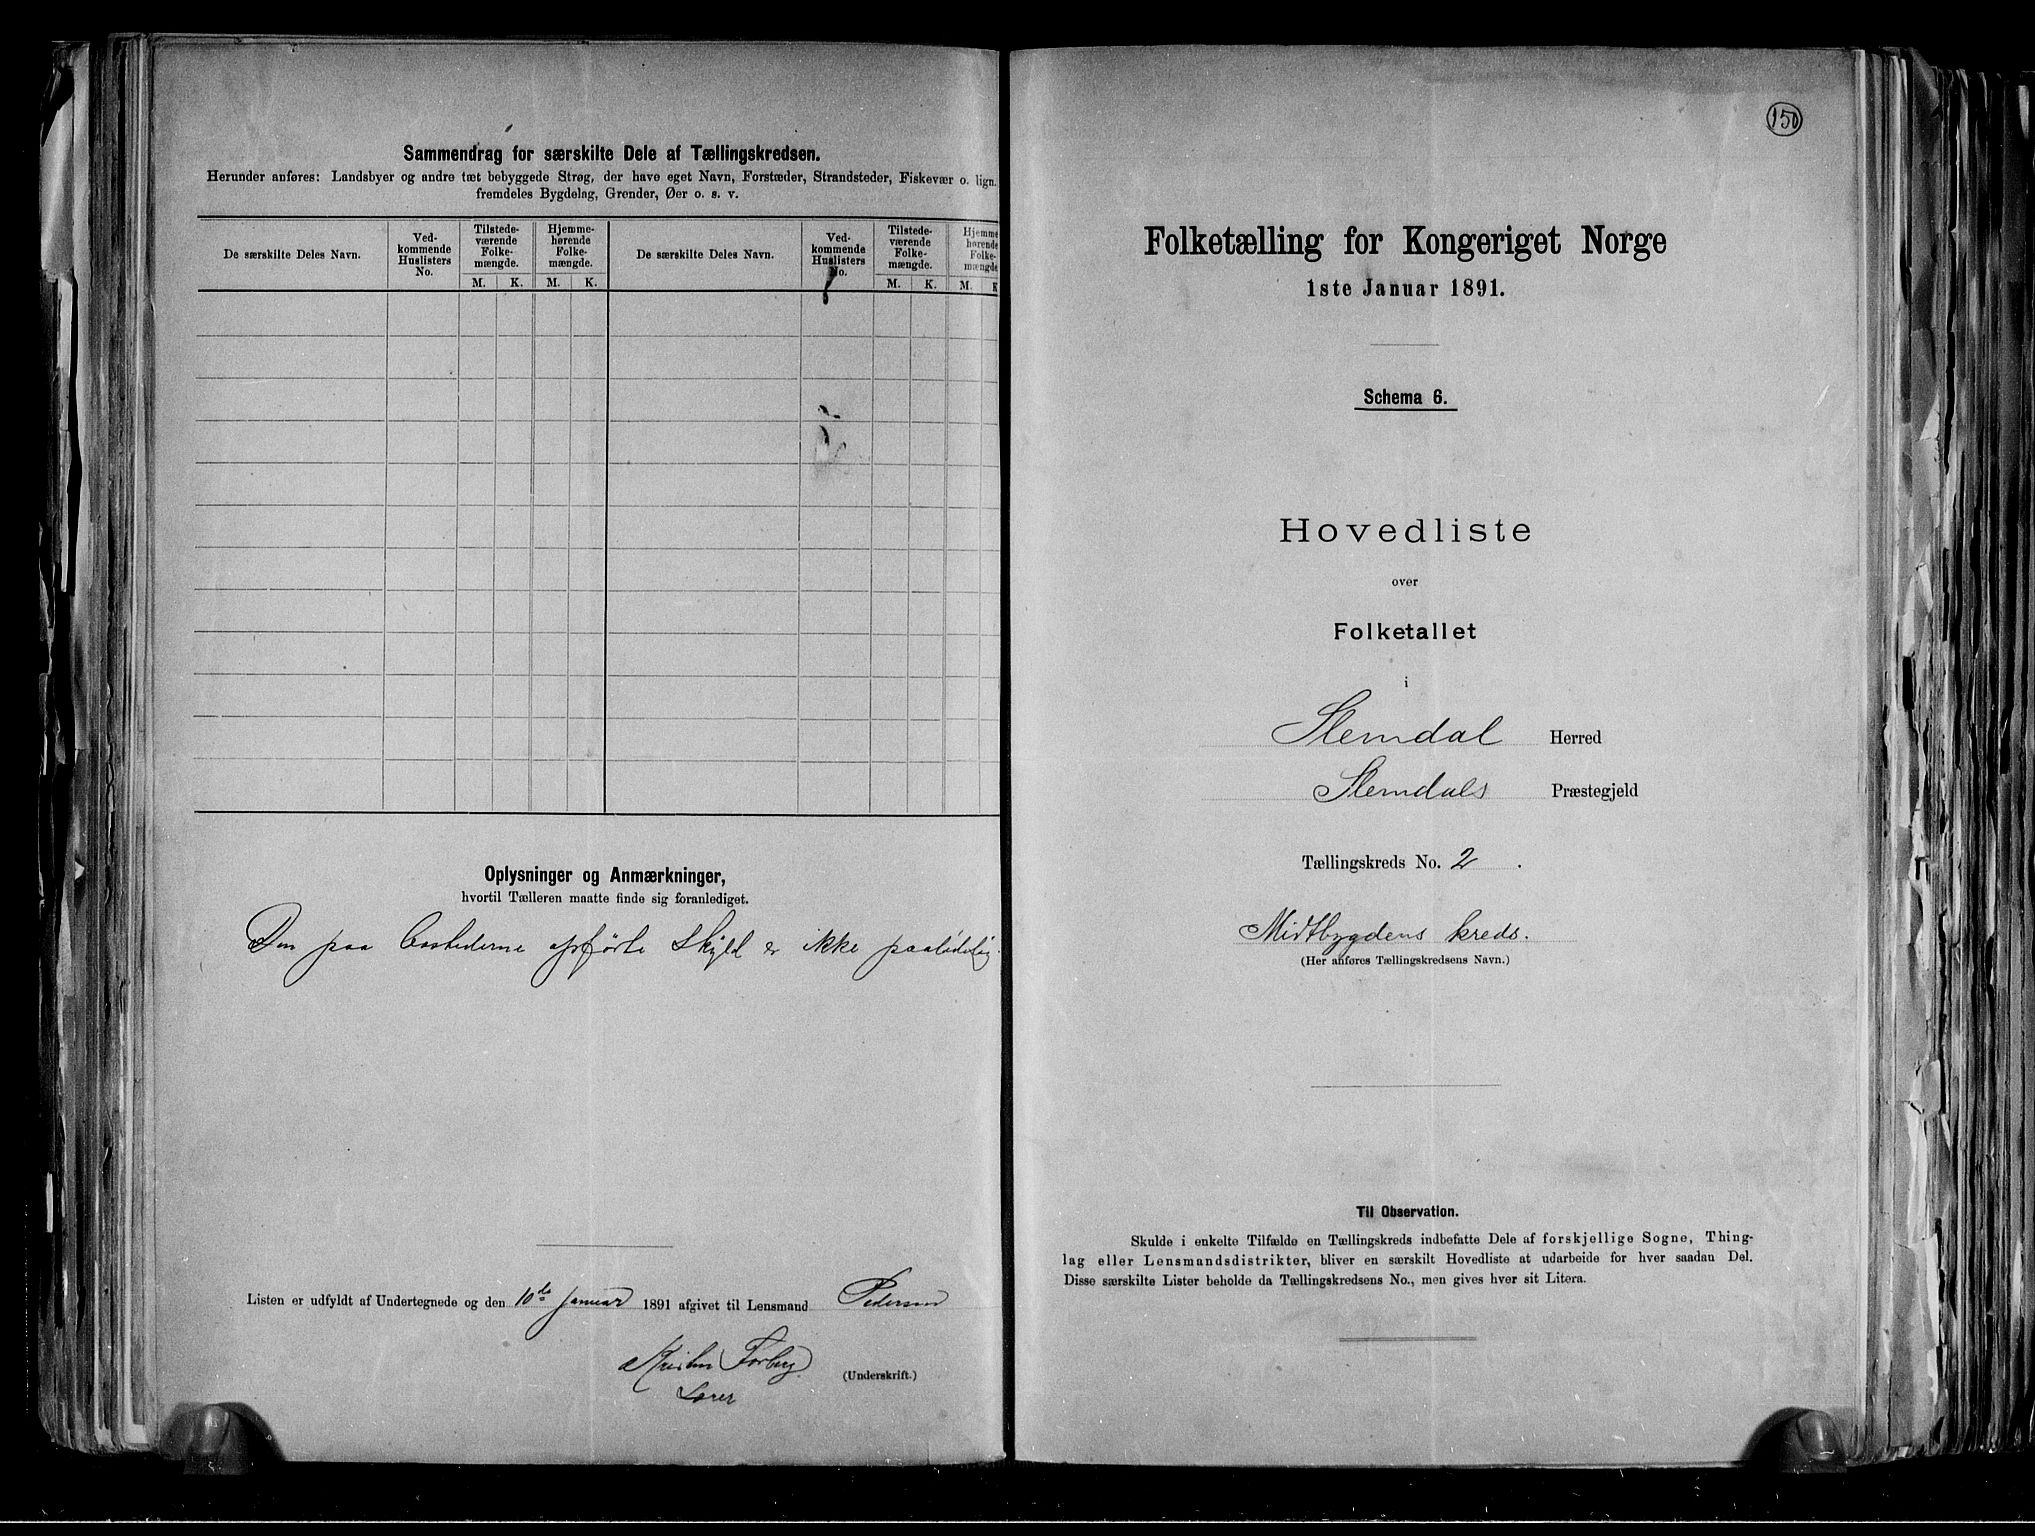 Sammendrag for særskilte Dele af Tællingskredsen.
Herunder anføres: Landsbyer og andre tæt bebyggede Strøg, der have eget Navn, Forstæder, Strandsteder, Fiskevær o. lign.
fremdeles Bygdelag, Grender, Øer o. s. v.
De særskilte Deles Navn.
Ved-
kommende
Huslisters
No.
Tilstede-
værende
Folke-
mængde.
Hjemme-
hørende
Folke-
mængde.
De særskilte Deles Navn.
Ved-
kommende
Huslisters
No.
Tilstede-
værende
Folke-
mængde.
Hjemme
hørende
Folke-
mængde
M. K. M. K. M. K. M. K
Oplysninger og Anmærkninger,
hvortil Tælleren maatte finde sig foranlediget.
Den paa Bostederne opførte Skyld er ikke paalidelig.
Listen er udfyldt af Undertegnede og den 10de Januar 1891 afgivet til Lensmand Pedersen
Kristen Forberg
(Underskrift.)
Lærer
150
Folketælling for Kongeriget Norge
1ste Januar 1891.
Schema 6.
Hovedliste
over
Folketallet
i
Slemdal Herred
Slemdals Præstegjeld
Tællingskreds No. 2.
Midtbygdens kreds.
(Her anføres Tællingskredsens Navn.)
Til Observation.
Skulde i enkelte Tilfælde en Tællingskreds indbefatte Dele af forskjellige Sogne, Thing-
lag eller Lensmandsdistrikter, bliver en særskilt Hovedliste at udarbeide for hver saadan Del.
Disse særskilte Lister beholde da Tællingskredsens No., men gives hver sit Litera.